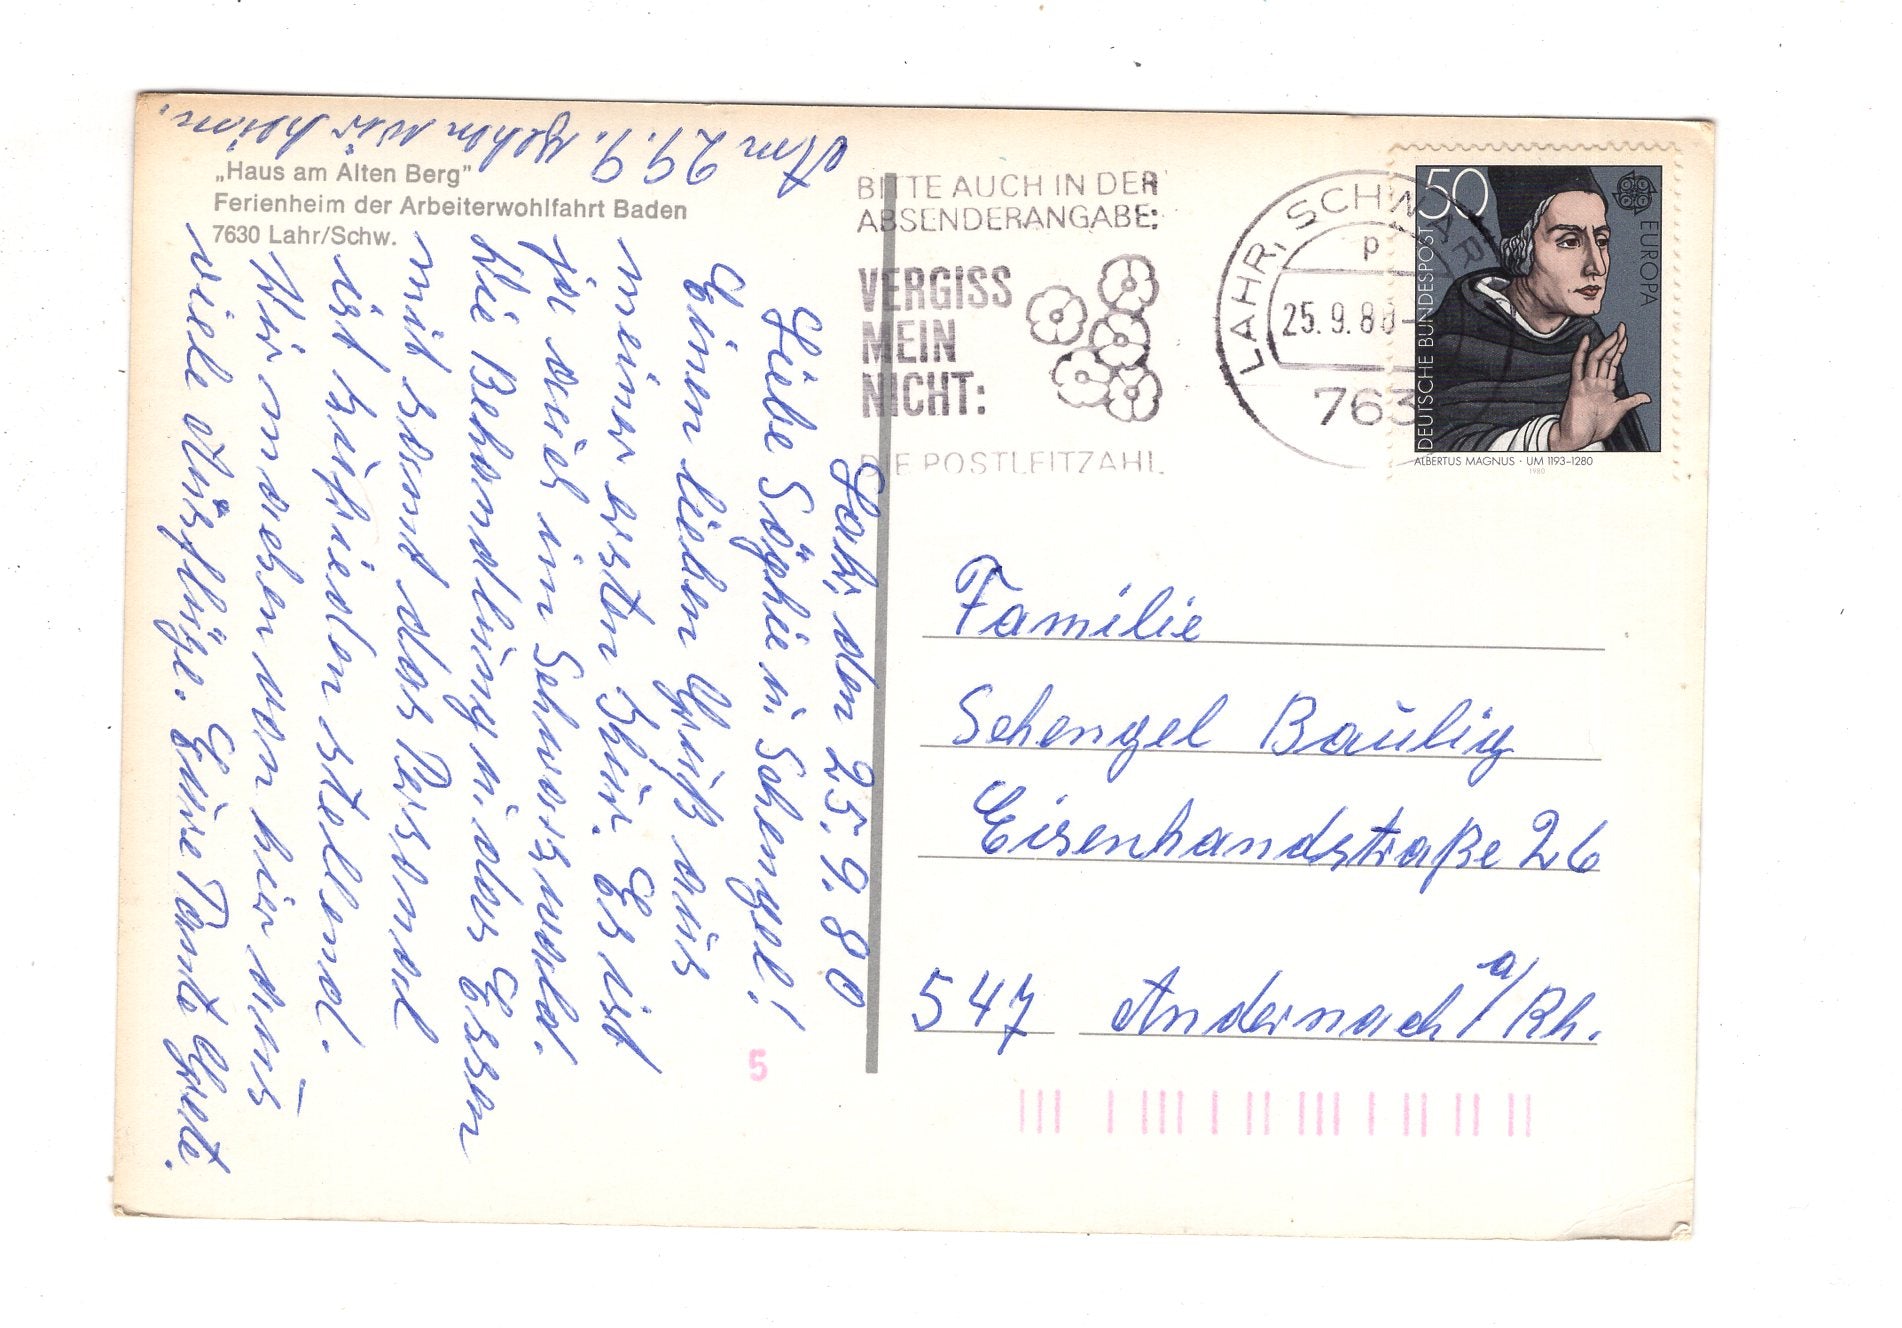 „Haus am Alten Berg"
Ferienheim der Arbeiterwohlfahrt Baden
7630 Lahr/Schw.
Lahr, den 25.9.80
Liebe Söphie u. Schengel!
Einen lieben Gruß aus
meiner ersten Kur. Es ist
ja auch im Schwarzwald.
Die Behandlung u. das Essen
mit samt das Personal
ist zufrieden stellend.
Wir machen von hier aus
viele Ausflüge. Eure Tante Grete.
Am 29.9. gehen wir heim.
BITTE AUCH IN DER
ABSENDERANGABE:
VERGISS
MEIN
NICHT:
DIE POSTLEITZAHL
LAHR, SCHWARZW
p
25.9.80
763
50
EUROPA
DEUTSCHE BUNDESPOST
ALBERTUS MAGNUS · UM 1193–1280
1980
Familie
Schengel Baulig
Eisenhandstraße 26
547 Andernach a/Rh.
5